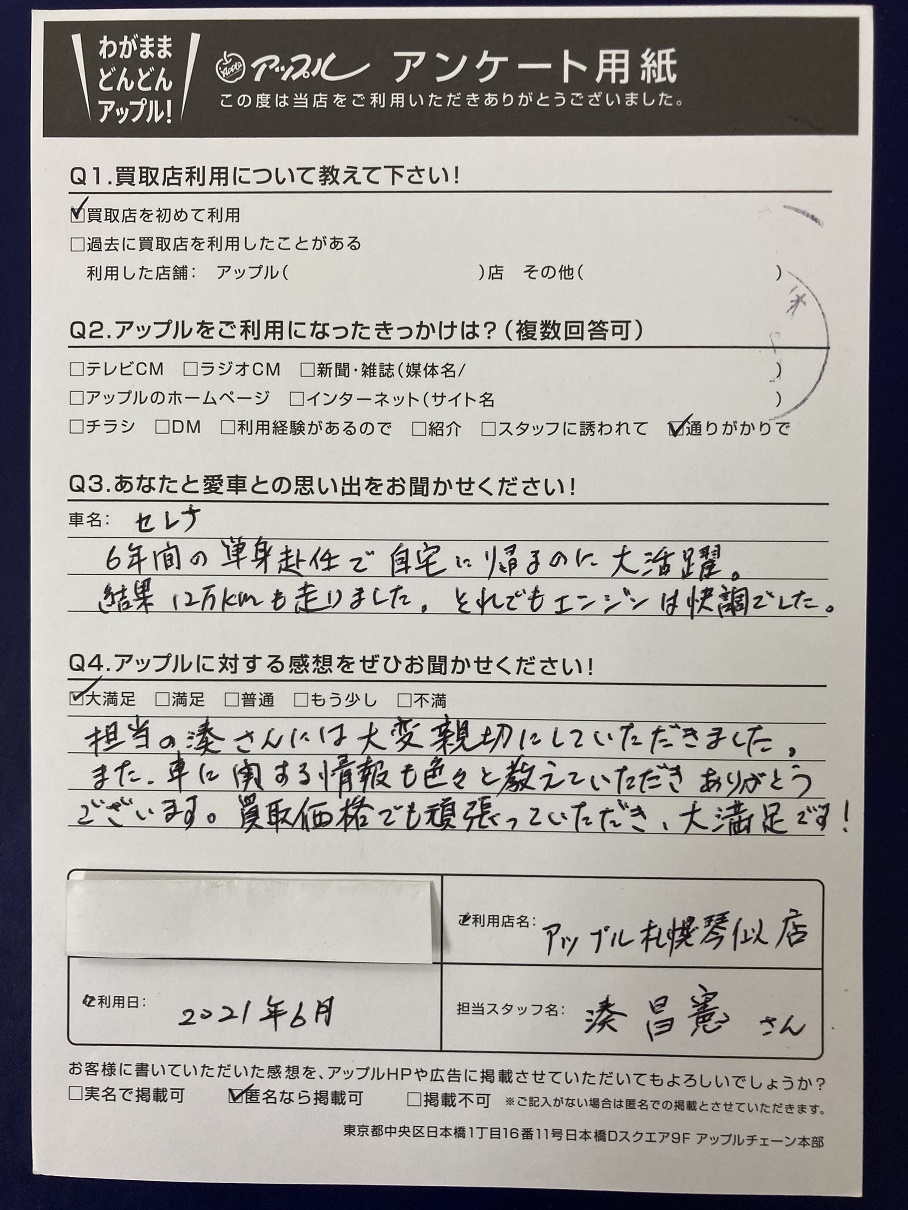 わがまま
どんどん
アップル!
Apple アップル アンケート用紙
この度は当店をご利用いただきありがとうございました。
Q1.買取店利用について教えて下さい!
☑買取店を初めて利用
□過去に買取店を利用したことがある
利用した店舗: アップル( )店 その他( )
Q2.アップルをご利用になったきっかけは?(複数回答可)
□テレビCM □ラジオCM □新聞・雑誌(媒体名/ )
□アップルのホームページ □インターネット(サイト名 )
□チラシ □DM □利用経験があるので □紹介 □スタッフに誘われて ☑通りがかりで
Q3.あなたと愛車との思い出をお聞かせください!
車名: セレナ
6年間の単身赴任で自宅に帰るのに大活躍。
結果12万kmも走りました。それでもエンジンは快調でした。
Q4.アップルに対する感想をぜひお聞かせください!
☑大満足 □満足 □普通 □もう少し □不満
担当の湊さんには大変親切にしていただきました。
また、車に関する情報も色々と教えていただきありがとう
ございます。買取価格でも頑張っていただき、大満足です!
ご利用店名: アップル札幌琴似店
ご利用日: 2021年6月
担当スタッフ名: 湊 昌憲 さん
お客様に書いていただいた感想を、アップルHPや広告に掲載させていただいてもよろしいでしょうか?
□実名で掲載可 ☑匿名なら掲載可 □掲載不可 ※ご記入がない場合は匿名での掲載とさせていただきます。
東京都中央区日本橋1丁目16番11号日本橋Dスクエア9F アップルチェーン本部